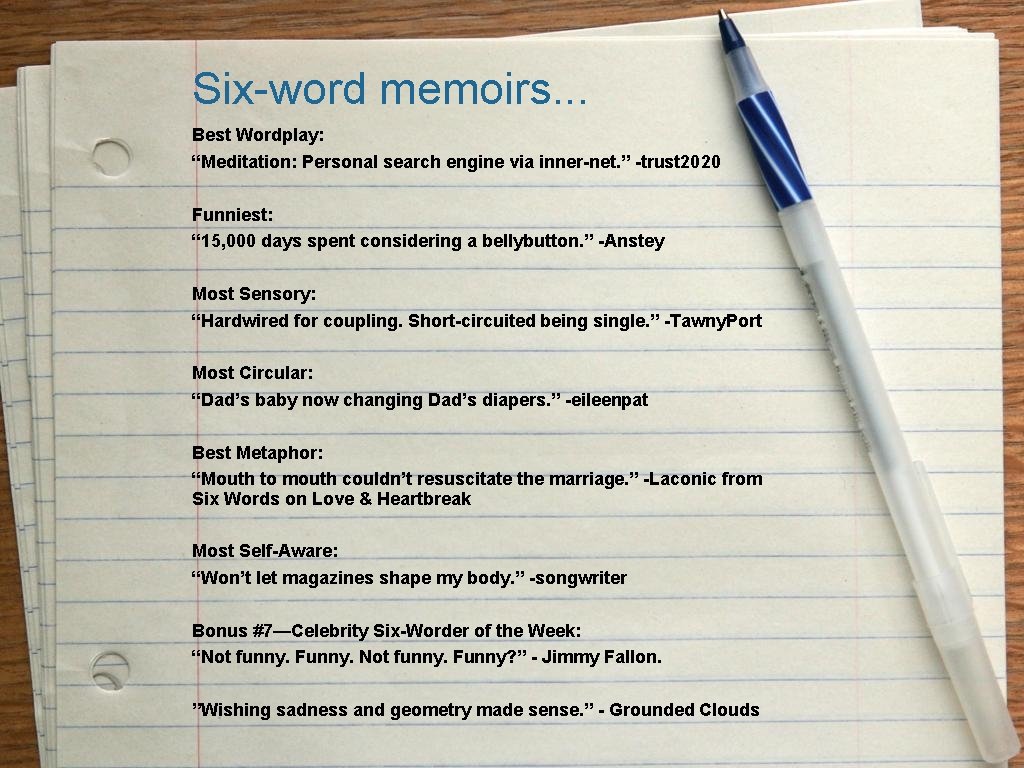 Six-word memoirs...
Best Wordplay:
“Meditation: Personal search engine via inner-net.” -trust2020
Funniest:
“15,000 days spent considering a bellybutton.” -Anstey
Most Sensory:
“Hardwired for coupling. Short-circuited being single.” -TawnyPort
Most Circular:
“Dad’s baby now changing Dad’s diapers.” -eileenpat
Best Metaphor:
“Mouth to mouth couldn’t resuscitate the marriage.” -Laconic from
Six Words on Love & Heartbreak
Most Self-Aware:
“Won’t let magazines shape my body.” -songwriter
Bonus #7—Celebrity Six-Worder of the Week:
“Not funny. Funny. Not funny. Funny?” - Jimmy Fallon.
”Wishing sadness and geometry made sense.” - Grounded Clouds